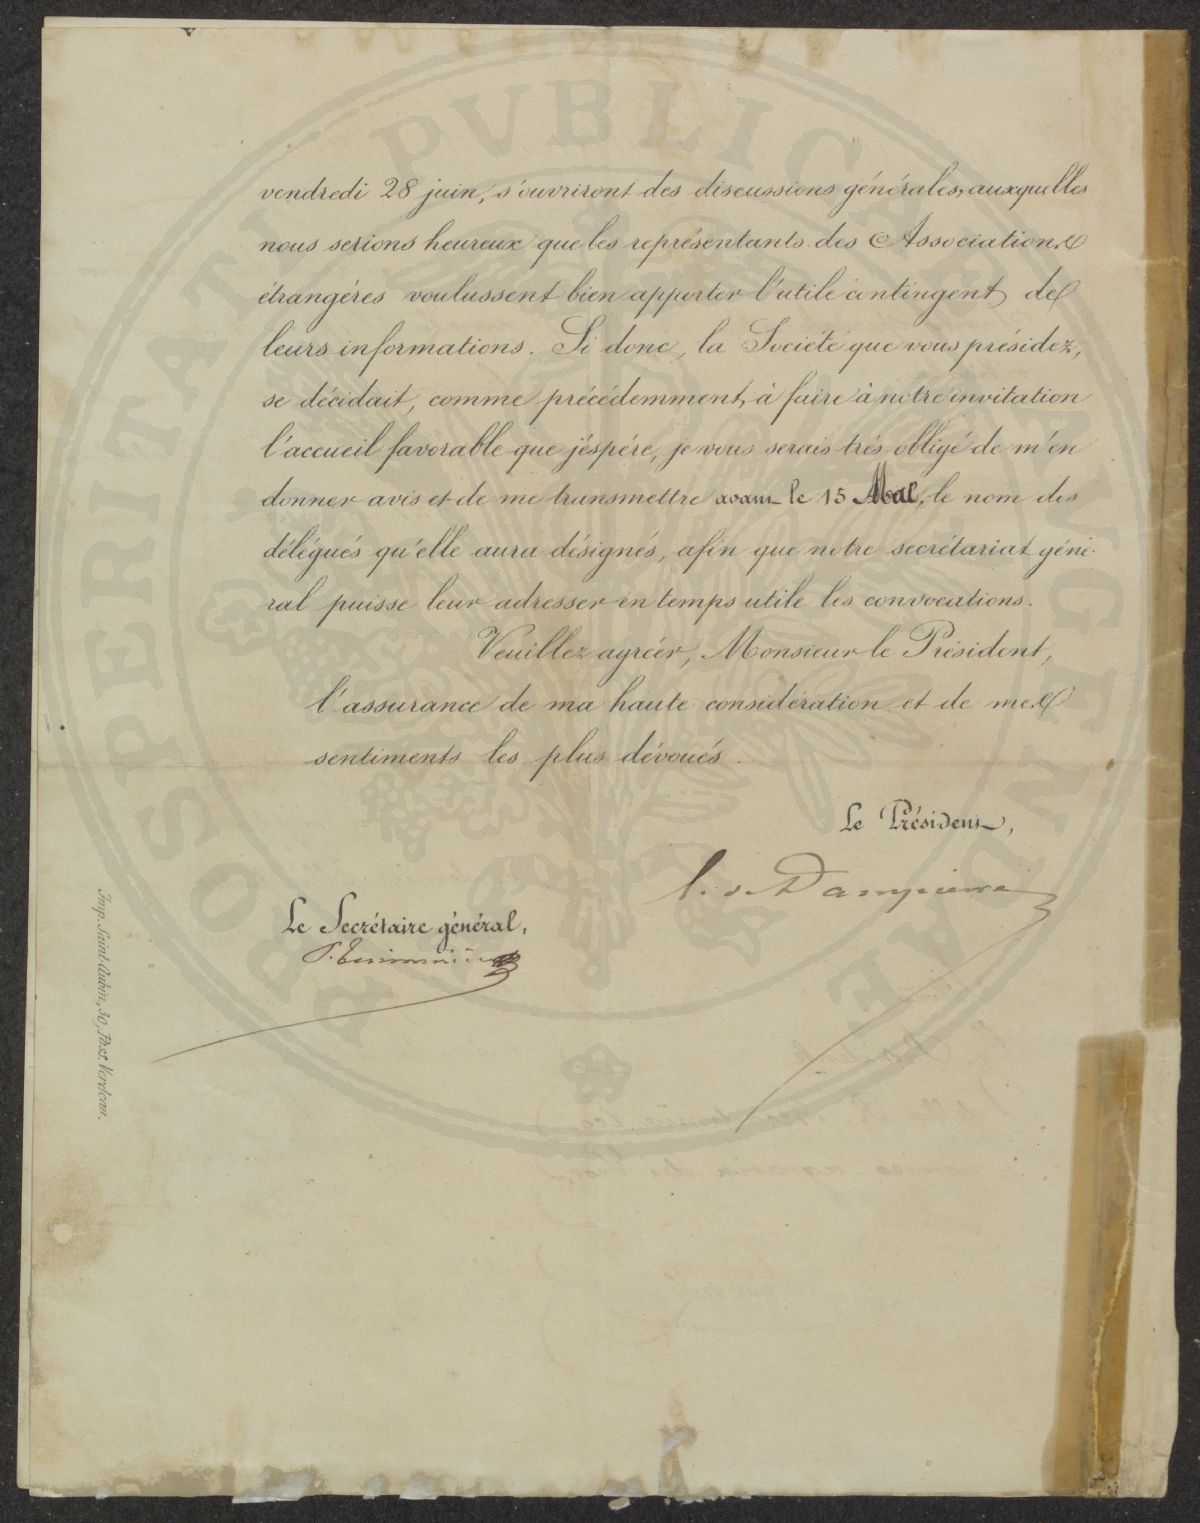 vendredi 28 juin, s'ouvriront des discussions générales, auxquelles
nous serions heureux que les représentants des Associations
étrangéres voulussent bien apporter l'utile contingent de
leurs informations. Si donc, la Société que vous présidez,
se décidait, comme précédemment, à faire à notre invitation
l'accueil favorable que j'éspére, je vous serais trés obligé de m'en
donner avis et de me transmettre avant le 15 Mai, le nom des
délégués qu'elle aura désignés, afin que notre secrétariat géné-
ral puisse leur adresser en temps utile les convocations.
Veuillez agréer, Monsieur le Président,
l'assurance de ma haute considération et de mes
sentiments les plus dévoués.
Le Président,
Dampierre
Le Secrétaire général,
Imp. Saint-Aubin, 30, Pass. Verdeau.
PROSPERITATI PVBLICAE AVGENDAE